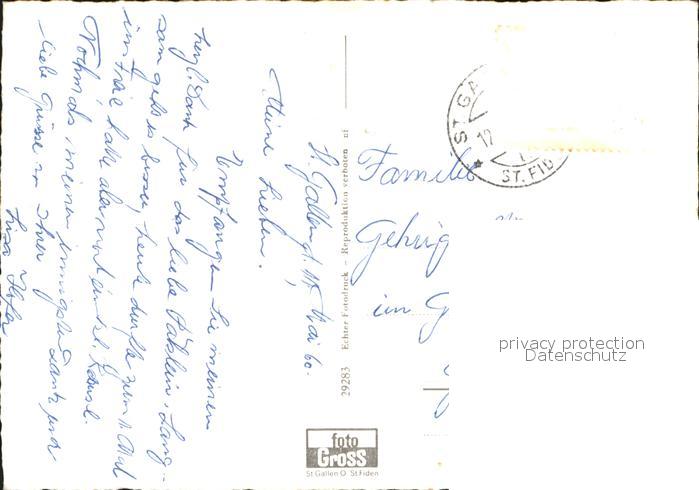 St. Gallen, d. 17. Mai 60.
Meine Lieben.
Empfangen Sie meinen
herzl. Dank für das liebe Päcklein. Lang-
sam geht es besser, heute durfte zum 1. Mal
ins Freie
Nochmals meinen innigsten Dank und
liebe Grüsse von Ihrer
Lisa
Familie
Gehrig
im G
ST. GA
12
ST. FID
29283 Echter Fotodruck - Reproduktion verboten
foto
Gross
St Gallen O St Fiden
privacy protection
Datenschutz